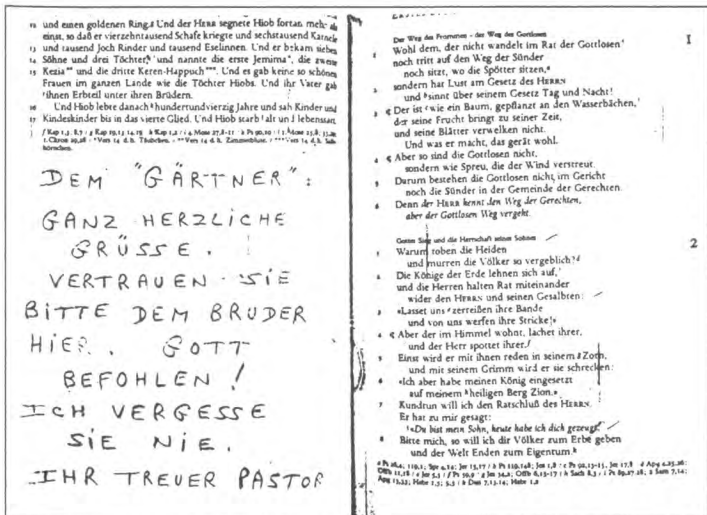 12 und einen goldenen Ring. Und der HERR segnete Hiob fortan mehr als
einst, so daß er vierzehntausend Schafe kriegte und sechstausend Kamele
13 und tausend Joch Rinder und tausend Eselinnen. Und er bekam sieben
14 Söhne und drei Töchter, und nannte die erste Jemima*, die zweite
15 Kezia** und die dritte Keren-Happuch***. Und es gab keine so schönen
Frauen im ganzen Lande wie die Töchter Hiobs. Und ihr Vater gab
ihnen Erbteil unter ihren Brüdern.
16 Und Hiob lebte danach hundertundvierzig Jahre und sah Kinder und
17 Kindeskinder bis in das vierte Glied. Und Hiob starb alt und lebenssatt.
DEM "GÄRTNER":
GANZ HERZLICHE
GRÜSSE.
VERTRAUEN SIE
BITTE DEM BRUDER
HIER. GOTT
BEFOHLEN!
ICH VERGESSE
SIE NIE.
IHR TREUER PASTOR
Der Weg des Frommen - der Weg des Gottlosen
1
1 Wohl dem, der nicht wandelt im Rat der Gottlosen
noch tritt auf den Weg der Sünder
noch sitzt, wo die Spötter sitzen,
2 sondern hat Lust am Gesetz des HERRN
und sinnt über seinem Gesetz Tag und Nacht!
3 Der ist wie ein Baum, gepflanzt an den Wasserbächen,
der seine Frucht bringt zu seiner Zeit,
und seine Blätter verwelken nicht.
Und was er macht, das gerät wohl.
4 Aber so sind die Gottlosen nicht,
sondern wie Spreu, die der Wind verstreut.
5 Darum bestehen die Gottlosen nicht im Gericht
noch die Sünder in der Gemeinde der Gerechten.
6 Denn der HERR kennt den Weg der Gerechten,
aber der Gottlosen Weg vergeht.
Gottes Sieg und die Herrschaft seines Sohnes
2
1 Warum toben die Heiden
und murren die Völker so vergeblich?
2 Die Könige der Erde lehnen sich auf,
und die Herren halten Rat miteinander
wider den HERRN und seinen Gesalbten:
3 »Lasset uns zerreißen ihre Bande
und von uns werfen ihre Stricke!«
4 Aber der im Himmel wohnt, lachet ihrer,
und der Herr spottet ihrer.
5 Einst wird er mit ihnen reden in seinem Zorn,
und mit seinem Grimm wird er sie schrecken:
6 »Ich aber habe meinen König eingesetzt
auf meinem heiligen Berg Zion.«
7 Kundtun will ich den Ratschluß des HERRN.
Er hat zu mir gesagt:
»Du bist mein Sohn, heute habe ich dich gezeugt.
8 Bitte mich, so will ich dir Völker zum Erbe geben
und der Welt Enden zum Eigentum.